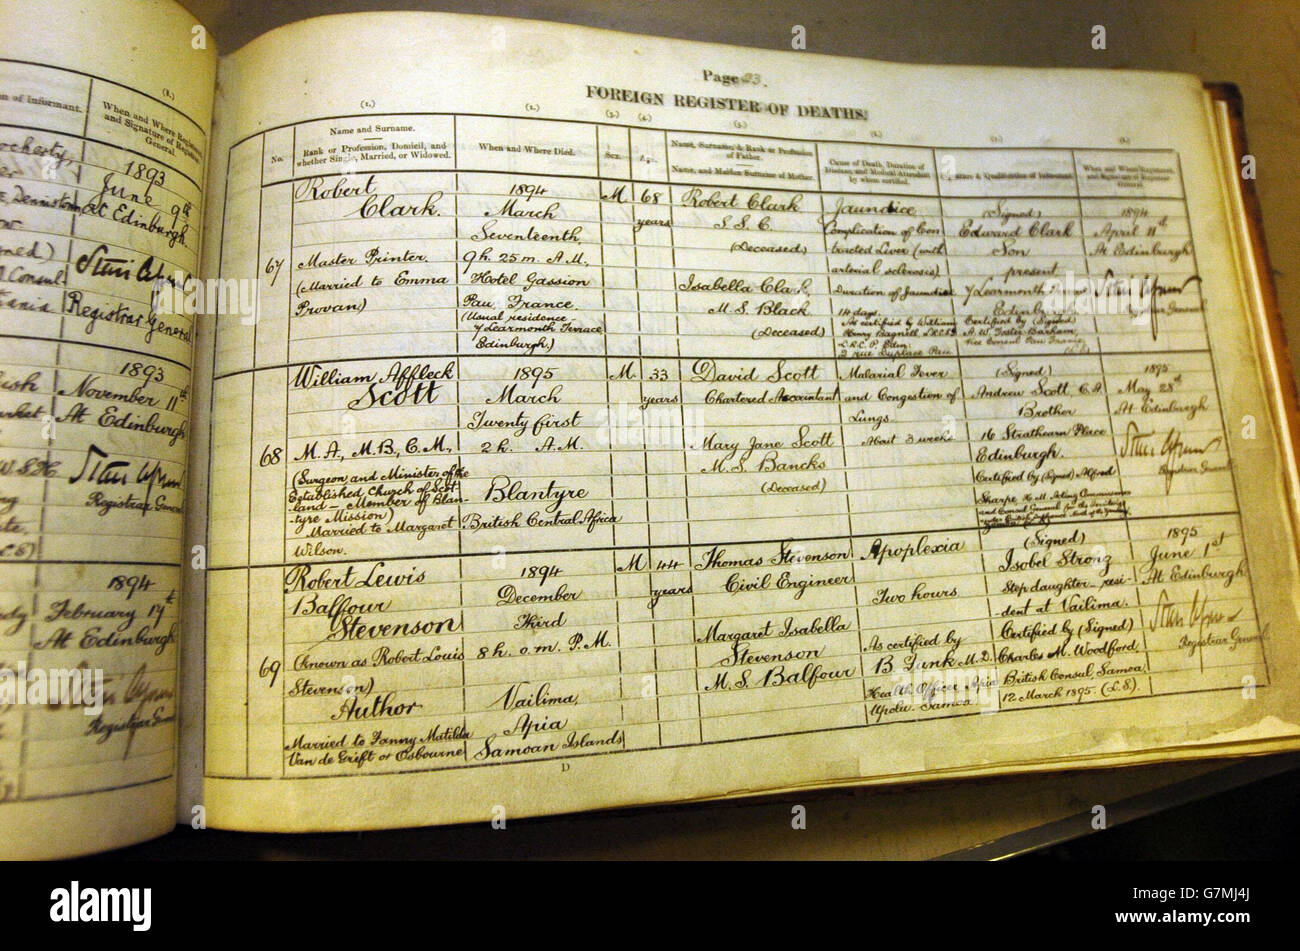 n of Informant.
(8.)
When and Where Registered
and Signature of Registrar
General.
1893
June 9th
At Edinburgh
Registrar General
1893
November 11th
At Edinburgh
Registrar General
1894
February 17th
At Edinburgh
Registrar General
Page 23.
FOREIGN REGISTER OF DEATHS.
(1.) (2.) (3.) (4.)
No.
Name and Surname.
Rank or Profession, Domicil, and
whether Single, Married, or Widowed.
When and Where Died.
Sex.
Age.
Name, Surname, & Rank or Profession
of Father.
Name, and Maiden Surname of Mother.
Cause of Death, Duration of
Disease, and Medical Attendant
by whom certified.
Signature & Qualification of Informant.
When and Where Registered,
and Signature of Registrar
General.
67
Robert
Clark.
Master Printer.
(Married to Emma
Provan)
1894
March
Seventeenth,
9h. 25m. A.M.,
Hotel Gassion
Pau, France.
(Usual residence -
7 Learmonth Terrace
Edinburgh.)
M
68
years
Robert Clark
S. S. C.
(Deceased)
Isabella Clark
M. S. Black
(Deceased)
Jaundice
Complication of Con
tracted Liver (with
arterial sclerosis)
Duration of Jaundice
14 days.
As certified by William
Henry Bagnell L.R.C.S.
L.R.C.P. Edin:
2 rue Duplace Pau
(Signed)
Edward Clark
Son
present
7 Learmonth Terrace
Edinburgh
Certified by (Signed)
A. W. Foster Barham
Vice Consul Pau France
(L.S.)
1894
April 11th
At Edinburgh
Registrar General
68
William Affleck
Scott
M.A., M.B., C.M.,
(Surgeon and Minister of the
Established Church of Scot-
land - Member of Blan-
tyre Mission)
Married to Margaret
Wilson.
1895
March
Twenty first
2h. A.M.
Blantyre
British Central Africa
M
33
years
David Scott
Chartered Accountant
Mary Jane Scott
M. S. Bancks
(Deceased)
Malarial Fever
and Congestion of
Lungs.
About 3 weeks
(Signed)
Andrew Scott, C.A.
Brother
16 Strathearn Place
Edinburgh.
Certified by (Signed) Alfred
Sharpe H. M. Acting Commissioner
and Consul General for the Territories
1895
May 28th
At Edinburgh
Registrar General
69
Robert Lewis
Balfour
Stevenson
(Known as Robert Louis
Stevenson)
Author
Married to Fanny Matilda
Van de Grift or Osbourne
1894
December
Third
8h. 0m. P.M.
Vailima,
Apia
Samoan Islands
M
44
years
Thomas Stevenson
Civil Engineer
Margaret Isabella
Stevenson
M. S. Balfour
Apoplexia
Two hours
As certified by
B. Funk M.D.
Health Officer Apia
Upolu. Samoa
(Signed)
Isobel Strong
Stepdaughter resi-
dent at Vailima.
Certified by (Signed)
Charles M. Woodford.
British Consul Samoa.
12 March 1895. (L.S.)
1895
June 1st
At Edinburgh
Registrar General
D
alamy
Image ID: G7MJ4J
www.alamy.com